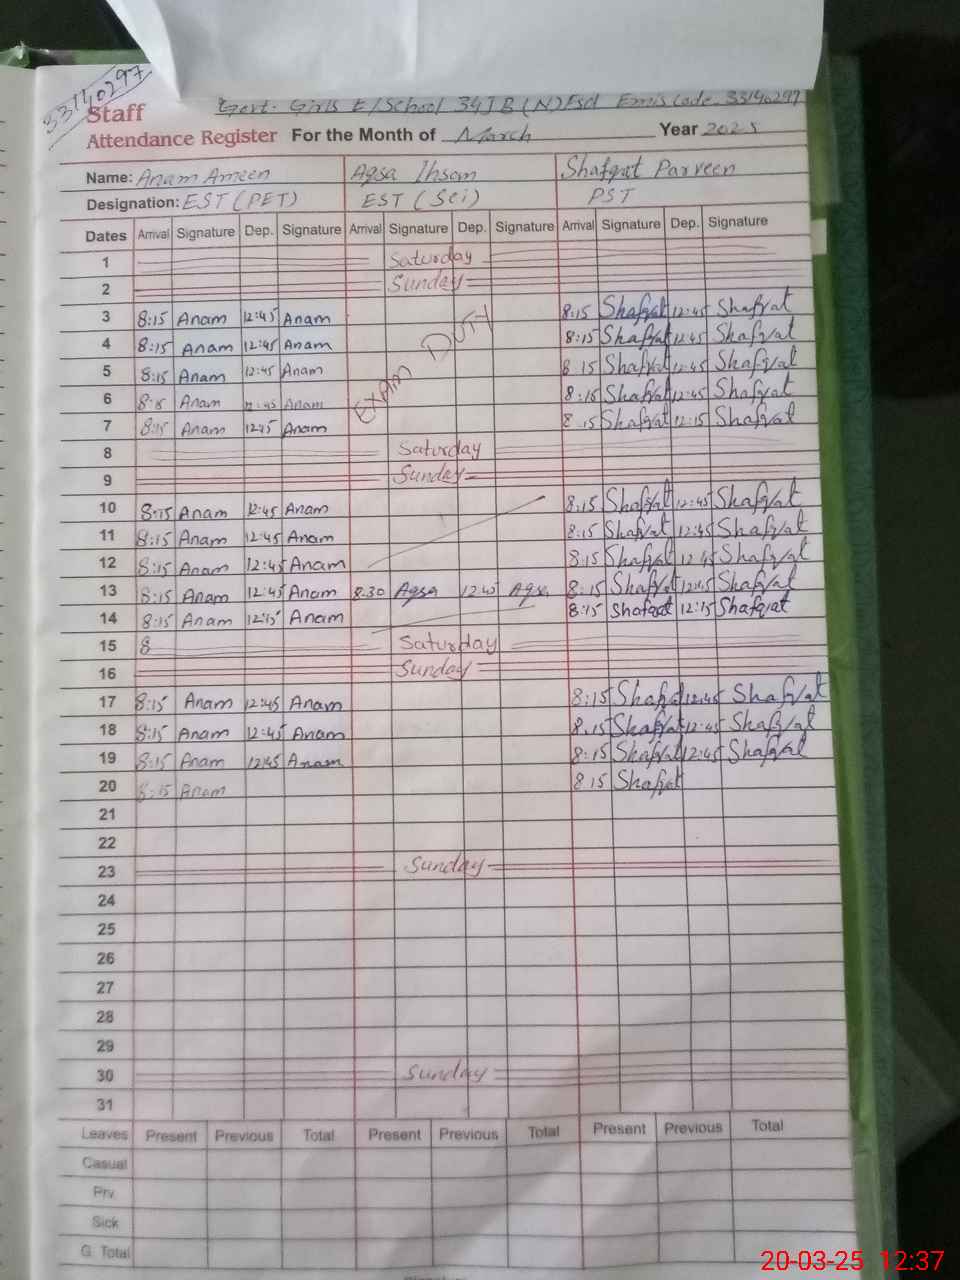 33140297
Govt. Girls E/School 34JB(N)Fsd Emis Code. 33140297
Staff
Attendance Register For the Month of March Year 2025
Name: Anam Ameen Aqsa Ihsam Shafqat Parveen
Designation: EST (PET) EST (Sci) PST
Dates Arrival Signature Dep. Signature Arrival Signature Dep. Signature Arrival Signature Dep. Signature
1 Saturday
2 Sunday
3 8:15 Anam 12:45 Anam 8:15 Shafqat 12:45 Shafqat
4 8:15 Anam 12:45 Anam 8:15 Shafqat 12:45 Shafqat
5 8:15 Anam 12:45 Anam 8:15 Shafqat 12:45 Shafqat
EXAM DUTY
6 8:15 Anam 12:45 Anam 8:15 Shafqat 12:45 Shafqat
7 8:15 Anam 12:15 Anam 8:15 Shafqat 12:15 Shafqat
8 Saturday
9 Sunday
10 8:15 Anam 12:45 Anam 8:15 Shafqat 12:45 Shafqat
11 8:15 Anam 12:45 Anam 8:15 Shafqat 12:45 Shafqat
12 8:15 Anam 12:45 Anam 8:15 Shafqat 12:45 Shafqat
13 8:15 Anam 12:45 Anam 8:30 Aqsa 12:45 Aqsa 8:15 Shafqat 12:45 Shafqat
14 8:15 Anam 12:15 Anam 8:15 Shafqat 12:15 Shafqat
15 8 Saturday
16 Sunday
17 8:15 Anam 12:45 Anam 8:15 Shafqat 12:45 Shafqat
18 8:15 Anam 12:45 Anam 8:15 Shafqat 12:45 Shafqat
19 8:15 Anam 12:45 Anam 8:15 Shafqat 12:45 Shafqat
20 8:15 Anam 8:15 Shafqat
21
22
23 Sunday
24
25
26
27
28
29
30 Sunday
31
Leaves Present Previous Total Present Previous Total Present Previous Total
Casual
Prv.
Sick
G. Total
20-03-25 12:37